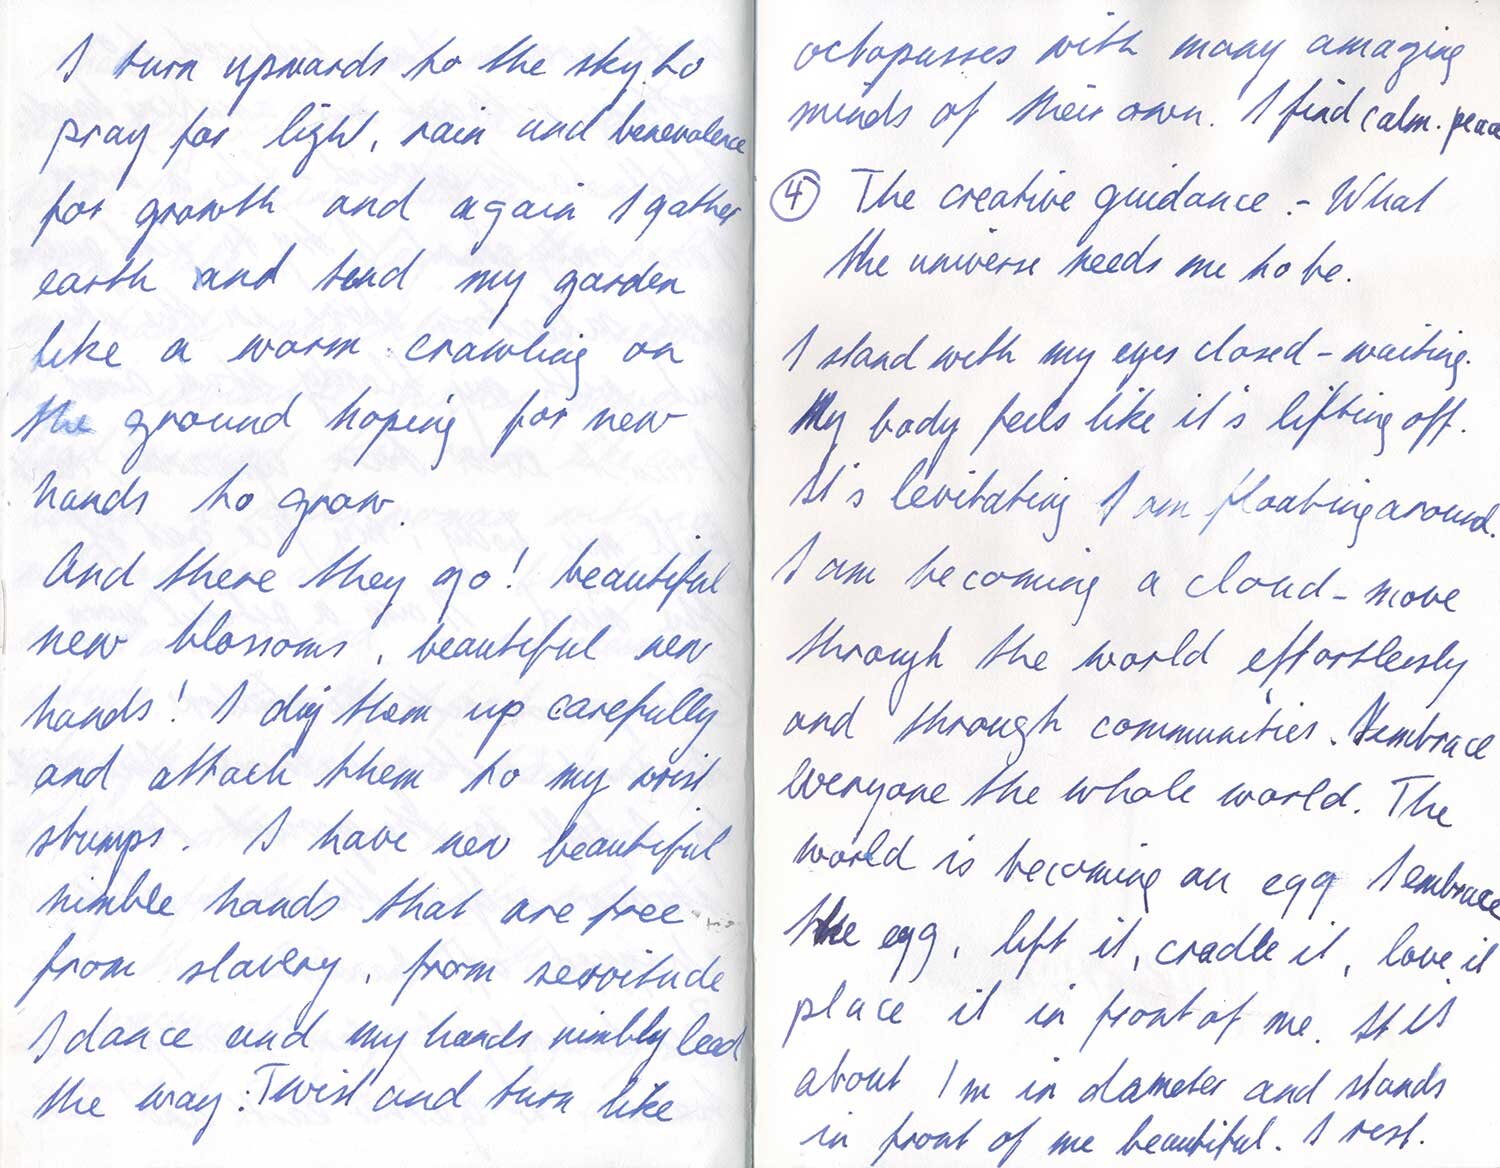 I turn upwards to the sky to
pray for light, rain and benevolence
for growth and again I gather
earth and tend my garden
like a worm crawling on
the ground hoping for new
hands to grow.
And there they go! beautiful
new blossoms, beautiful new
hands! I dig them up carefully
and attach them to my wrist
stumps. I have new beautiful
nimble hands that are free
from slavery, from servitude
I dance and my hands nimbly lead
the way: Twist and turn like
octopusses with many amazing
minds of their own. I find calm. peace
④ The creative guidance. - What
the universe needs me to be.
I stand with my eyes closed - waiting.
My body feels like it's lifting off.
It's levitating I am floating around.
I am becoming a cloud - move
through the world effortlessly
and through communities. I embrace
everyone the whole world. The
world is becoming an egg I embrace
the egg, lift it, cradle it, love it
place it in front of me. It is
about 1m in diameter and stands
in front of me beautiful. I rest.